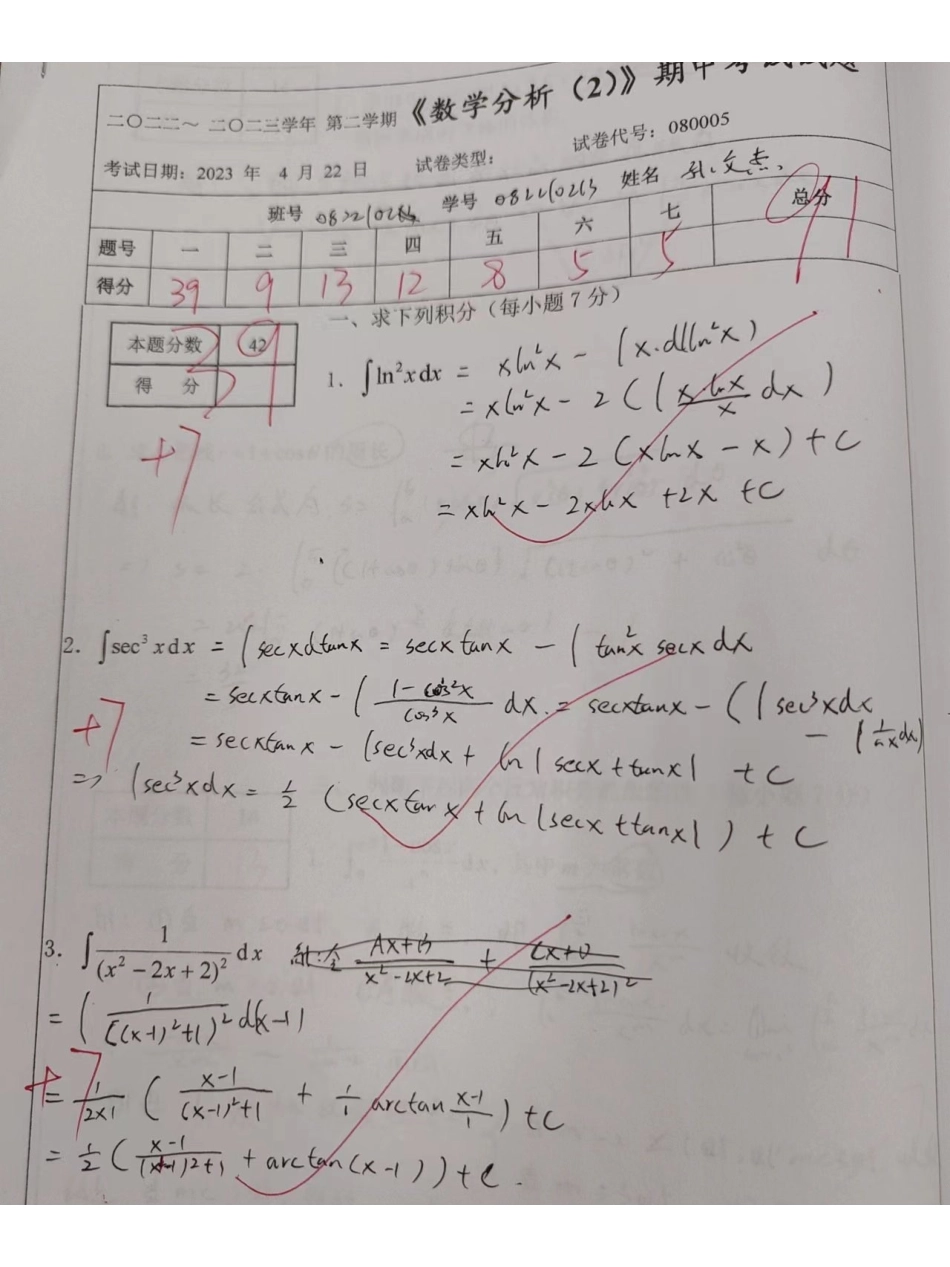 《数学分析（2）》期中考试试题
二〇二二～二〇二三学年 第二学期
考试日期：2023 年 4 月 22 日 试卷类型： 试卷代号：080005
班号 学号 08220213 姓名 孙文杰
题号 一 二 三 四 五 六 七 总分
得分 39 9 13 12 8 5 5 91
本题分数 42
得 分 39
一、求下列积分（每小题 7 分）
1. ∫ln²xdx = xln²x - ∫x·d(ln²x)
= xln²x - 2(∫x lnx/x dx)
= xln²x - 2(xlnx - x) + C
= xln²x - 2xlnx + 2x + C
+7
2. ∫sec³xdx = ∫secxdtanx = secxtanx - ∫tan²x secx dx
= secxtanx - ∫(1-cos²x)/cos³x dx = secxtanx - (∫sec³xdx
- ∫1/cosx dx)
= secxtanx - ∫sec³xdx + ln|secx+tanx| + C
=> ∫sec³xdx = 1/2 (secxtanx + ln|secx+tanx|) + C
+7
3. ∫1/(x²-2x+2)² dx 解:令 (Ax+B)/(x²-2x+2) + (Cx+D)/(x²-2x+2)²
= ∫1/((x-1)²+1)² d(x-1)
= 1/(2×1) ((x-1)/((x-1)²+1) + 1/1 arctan (x-1)/1) + C
= 1/2 ((x-1)/((x-1)²+1) + arctan(x-1)) + C.
+7